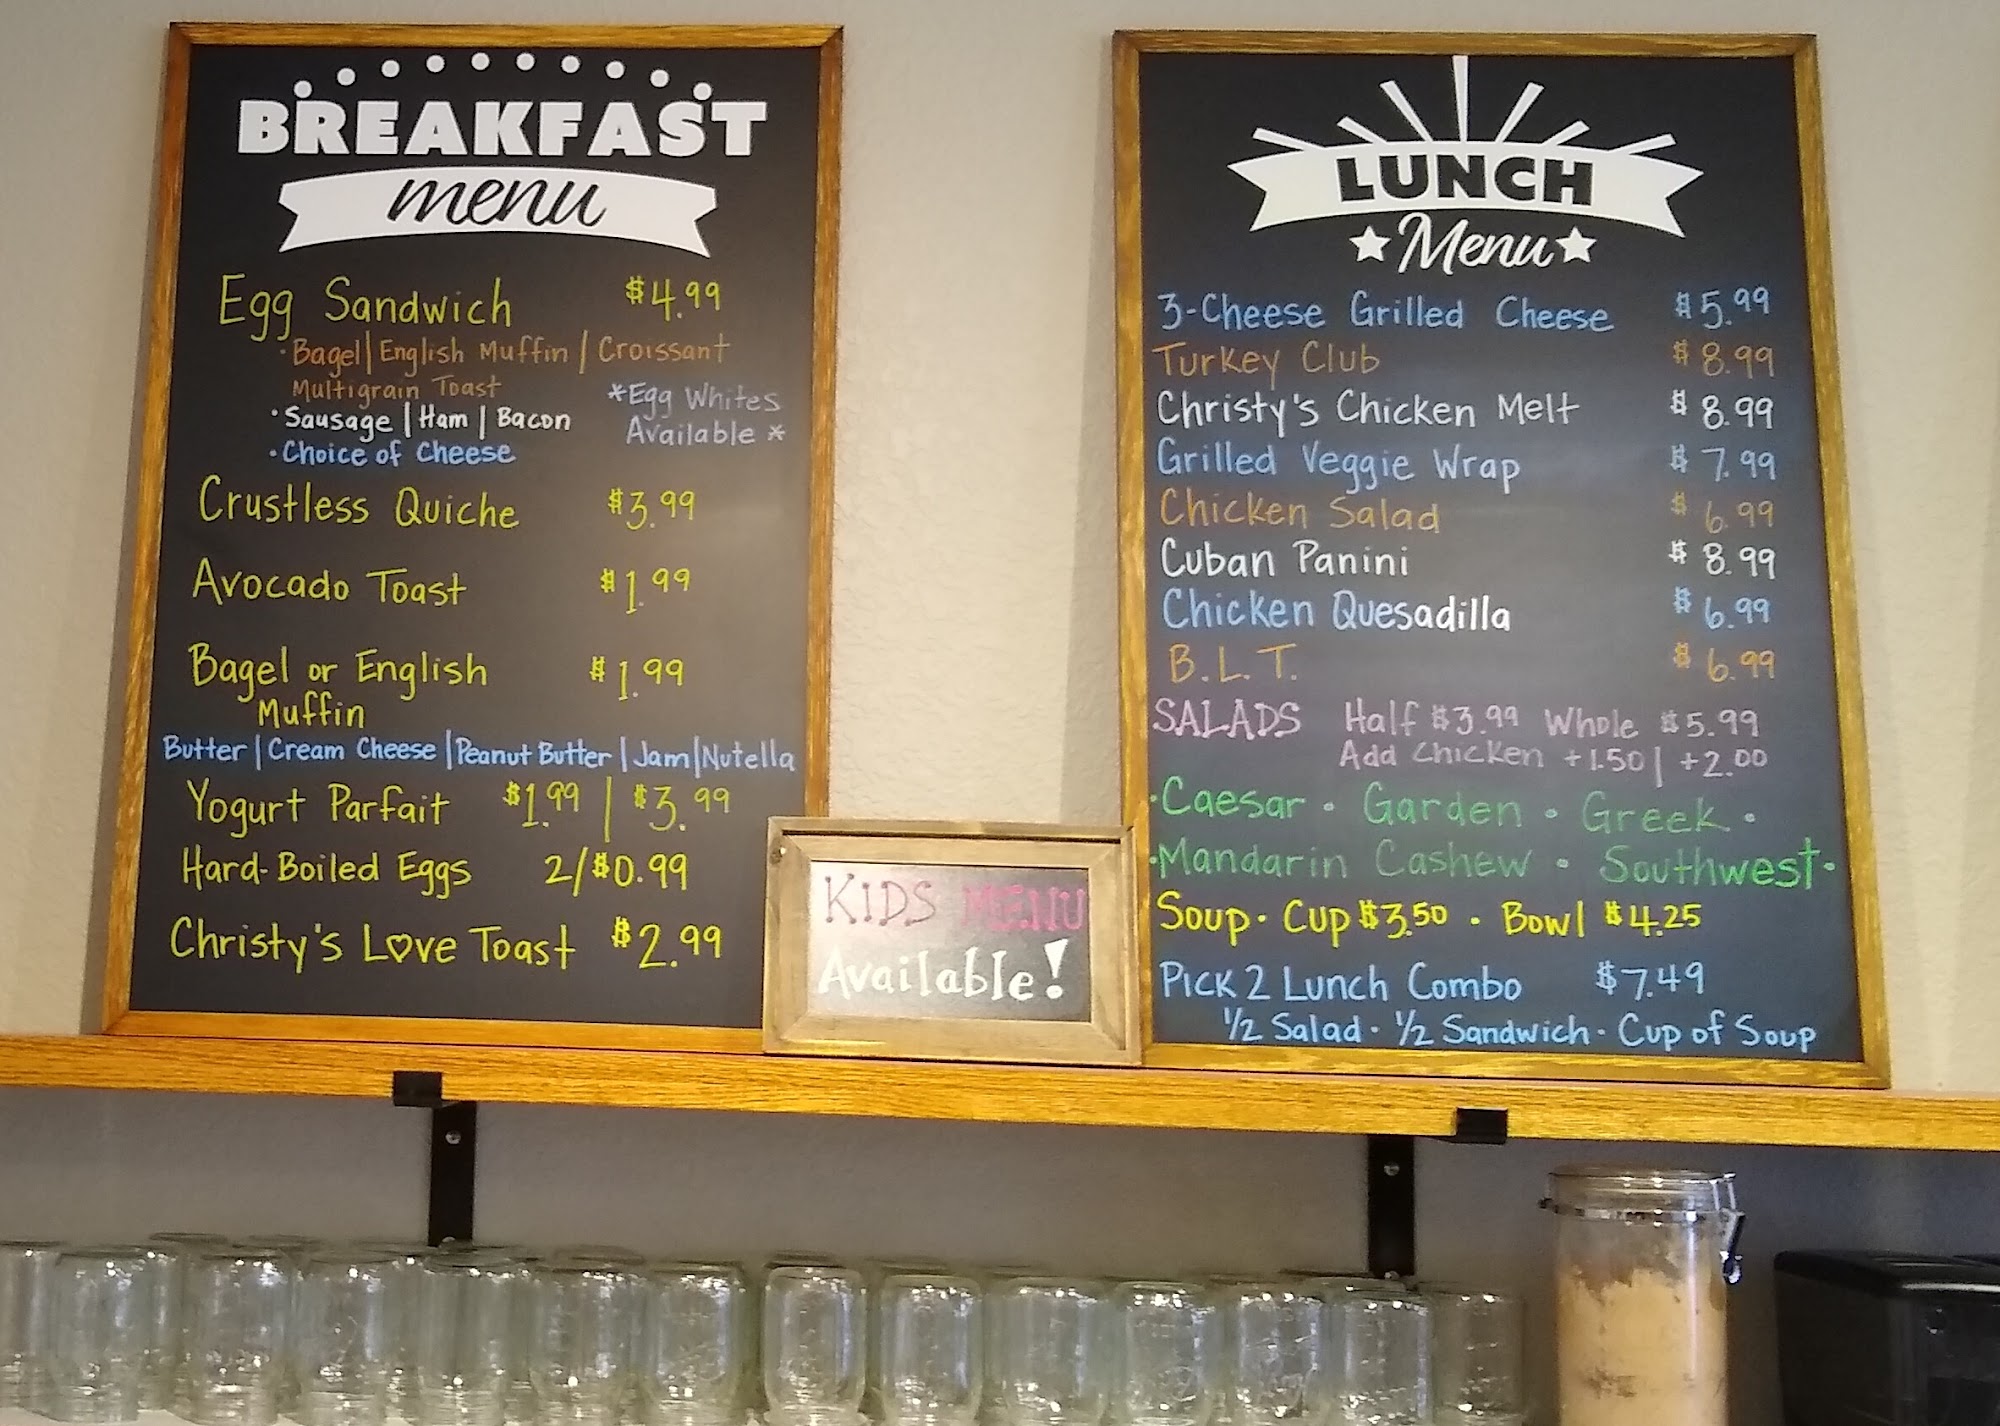 BREAKFAST
menu
Egg Sandwich $4.99
·Bagel|English Muffin|Croissant
Multigrain Toast
·Sausage|Ham|Bacon
·Choice of Cheese
*Egg Whites
Available*
Crustless Quiche $3.99
Avocado Toast $1.99
Bagel or English $1.99
Muffin
Butter|Cream Cheese|Peanut Butter|Jam|Nutella
Yogurt Parfait $1.99 | $3.99
Hard-Boiled Eggs 2/$0.99
Christy's L♡ve Toast $2.99
KIDS MENU
Available!
LUNCH
Menu
3-Cheese Grilled Cheese $5.99
Turkey Club $8.99
Christy's Chicken Melt $8.99
Grilled Veggie Wrap $7.99
Chicken Salad $6.99
Cuban Panini $8.99
Chicken Quesadilla $6.99
B.L.T. $6.99
SALADS Half $3.99 Whole $5.99
Add Chicken +1.50| +2.00
·Caesar · Garden · Greek ·
·Mandarin Cashew · Southwest·
Soup · Cup $3.50 · Bowl $4.25
Pick 2 Lunch Combo $7.49
1/2 Salad · 1/2 Sandwich · Cup of Soup